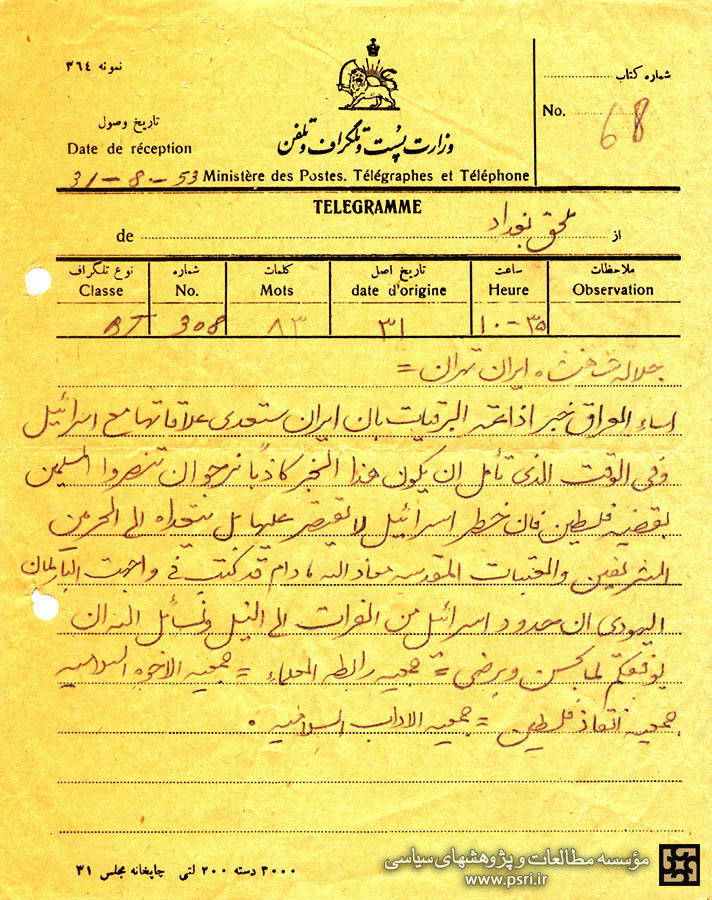 نمونه ٣٦٤
شماره کتاب
No. 68
تاریخ وصول
Date de réception
31-8-53
وزارت پست و تلگراف و تلفن
Ministère des Postes. Télégraphes et Téléphone
TELEGRAMME
de از بغداد
نوع تلگراف شماره کلمات تاریخ اصل ساعت ملاحظات
Classe No. Mots date d'origine Heure Observation
BT 308 ٨٣ ٣١ ١٠-٣٥
جلاله شاهنشاه ایران تهران =
اساء العراق خبر اذاعته البرقیات بان ایران ستعدی علاقاتها مع اسرائیل
وفی الوقت الذی تأمل ان یکون هذا الخبر کاذبا نرجو ان تنصروا المسلمین
بقضیه فلسطین فان خطر اسرائیل لا یقتصر علیها بل یتعداه الی الحرمین
الشریفین والعتبات المقدسه معاذ الله مادام قد کتبت فی واجهت البارلمان
الیهودی ان حدود اسرائیل من الفرات الی النیل ونسائل الله ان
یوفقکم لما یحسن ویرضی = جمعیه رابطه العلماء = جمعیه الاخوه الاسلامیه
جمعیه انقاذ فلسطین = جمعیه الاداب الاسلامیه .
٣٠٠٠ دسته ٢٠٠ لتی چاپخانه مجلس ٣١
مؤسسه مطالعات و پژوهشهای سیاسی
www.psri.ir